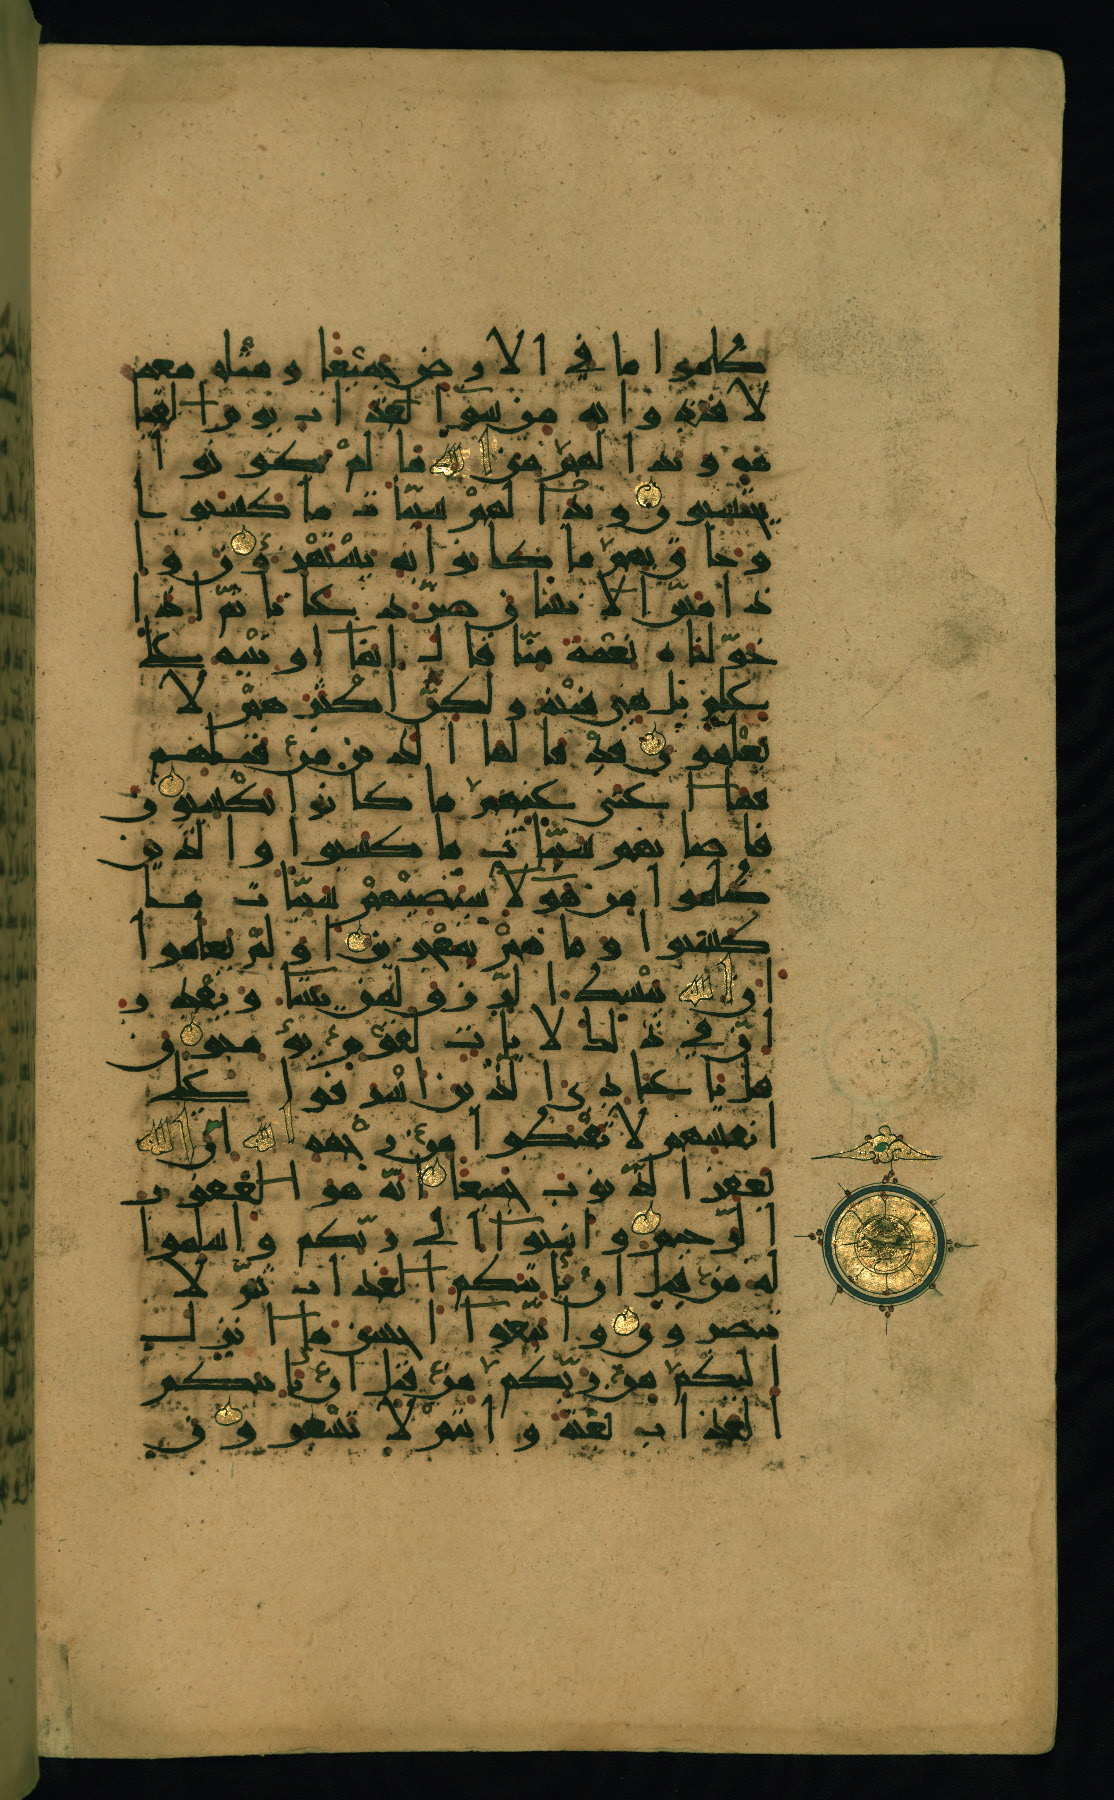 ظلموا ما في الارض جميعا ومثله معه
لافتدوا به من سوا العذاب يوم القيا
مة وبدا لهم من الله ما لم يكونوا
يحتسبون وبدا لهم سيات ما كسبوا
وحاق بهم ما كانوا به يستهزون فا
ذا مس الانسان ضر دعانا ثم اذا
خولناه نعمة منا قال انما اوتيته على
علم بل هي فتنة ولكن اكثرهم لا
يعلمون قد قالها الذين من قبلهم
فما اغنى عنهم ما كانوا يكسبون
فاصابهم سيات ما كسبوا والذين
ظلموا من هولا سيصيبهم سيات ما
كسبوا وما هم بمعجزين اولم يعلموا
ان الله يبسط الرزق لمن يشا ويقدر
ان في ذلك لايات لقوم يؤمنون
قل يا عبادي الذين اسرفوا على
انفسهم لا تقنطوا من رحمة الله ان الله
يغفر الذنوب جميعا انه هو الغفور
الرحيم وانيبوا الى ربكم واسلموا
له من قبل ان ياتيكم العذاب ثم لا
تنصرون واتبعوا احسن ما انزل
اليكم من ربكم من قبل ان ياتيكم
العذاب بغتة وانتم لا تشعرون